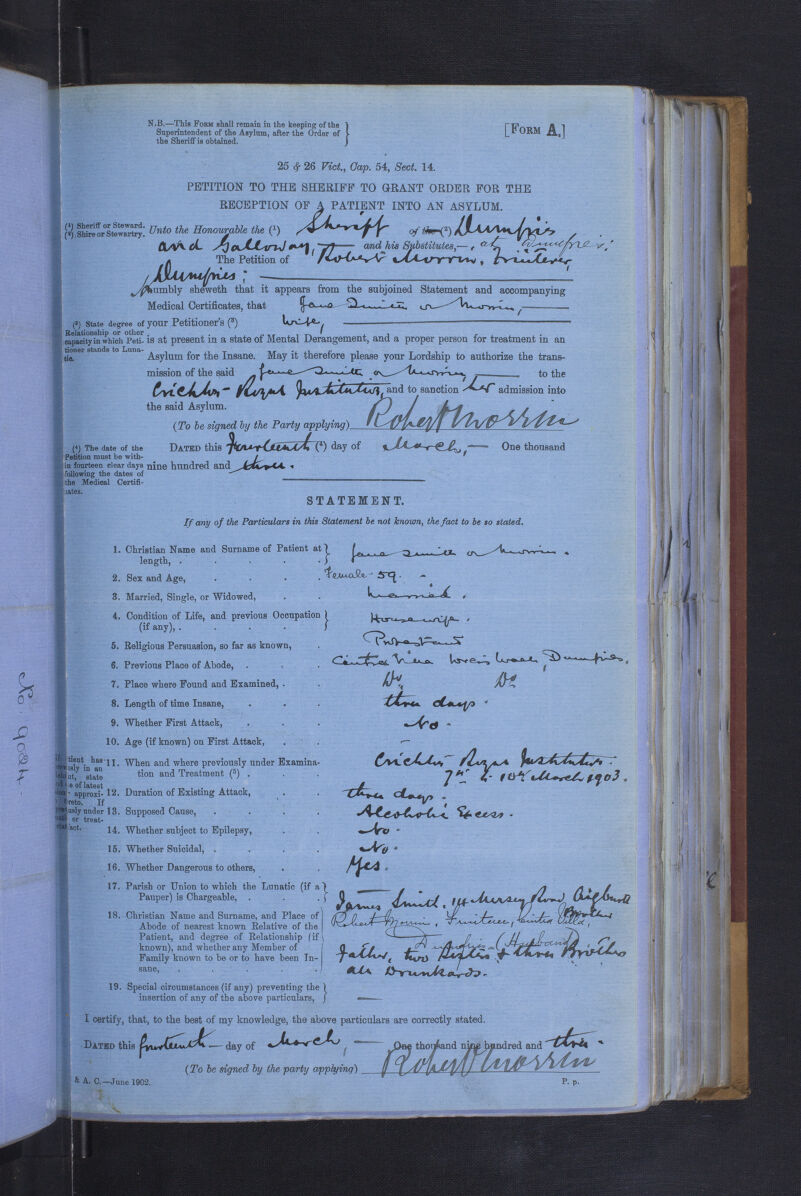 N.B.—This Form shall remain in the keeping of the
Superintendent of the Asylum, after the Order of
the Sheriff is obtained.
[Form A.]
25 & 26 Vict., Cap. 54, Sect. 14.
PETITION TO THE SHERIFF TO GRANT ORDER FOR THE
RECEPTION OF A PATIENT INTO AN ASYLUM.
(1) Sheriff or Steward.
(2) Shire or Stewartry.
Unto the Honourable the (1) Sheriff of the (2) Dumfries
and Galloway, — and his Substitutes,—, at Dumfries:
The Petition of Robert Morrin,
Dumfries;
humbly sheweth that it appears from the subjoined Statement and accompanying
Medical Certificates, that Jane Smith or Morrin, —
(3) State degree of
Relationship or other
capacity in which Peti-
tioner stands to Luna-
tic.
your Petitioner's (3) wife,
is at present in a state of Mental Derangement, and a proper person for treatment in an
Asylum for the Insane. May it therefore please your Lordship to authorize the trans-
mission of the said Jane Smith or Morrin — to the
Crichton Royal Institution, and to sanction her admission into
the said Asylum.
(To be signed by the Party applying) Robert Morrin
(4) The date of the
Petition must be with-
in fourteen clear days
following the dates of
the Medical Certifi-
cates.
Dated this Fourteenth (4) day of March, — One thousand
nine hundred and three.
STATEMENT.
If any of the Particulars in this Statement be not known, the fact to be so stated.
1. Christian Name and Surname of Patient at
length, . Jane Smith or Morrin.
2. Sex and Age, Female - 59.
3. Married, Single, or Widowed, Married.
4. Condition of Life, and previous Occupation
(if any), . Housewife.
5. Religious Persuasion, so far as known, Protestant
6. Previous Place of Abode, . Villa Dumfries.
7. Place where Found and Examined, . Do Do
8. Length of time Insane, three days.
9. Whether First Attack, No.
10. Age (if known) on First Attack, —
11. When and where previously under Examina-
tion and Treatment (5) . Crichton Royal Institution.
7th to 10th March 1903.
12. Duration of Existing Attack, three days.
13. Supposed Cause, Alcoholic Excess.
14. Whether subject to Epilepsy, No.
15. Whether Suicidal, . No.
16. Whether Dangerous to others, Yes.
17. Parish or Union to which the Lunatic (if a
Pauper) is Chargeable, .
James Smith, 14 Mersey Road Aigburth
Brother
18. Christian Name and Surname, and Place of
Abode of nearest known Relative of the
Patient, and degree of Relationship (if
known), and whether any Member of
Family known to be or to have been In-
sane,
Robert Morrin, Villa,
Dumfries (Husband)
Father, two Sisters & three Brothers
all Drunkards.
19. Special circumstances (if any) preventing the
insertion of any of the above particulars, —
I certify, that, to the best of my knowledge, the above particulars are correctly stated.
Dated this fourteenth — day of March, — One thousand nine hundred and three.
(To be signed by the party applying) Robert Morrin
& A. C.—June 1902.
P. p.